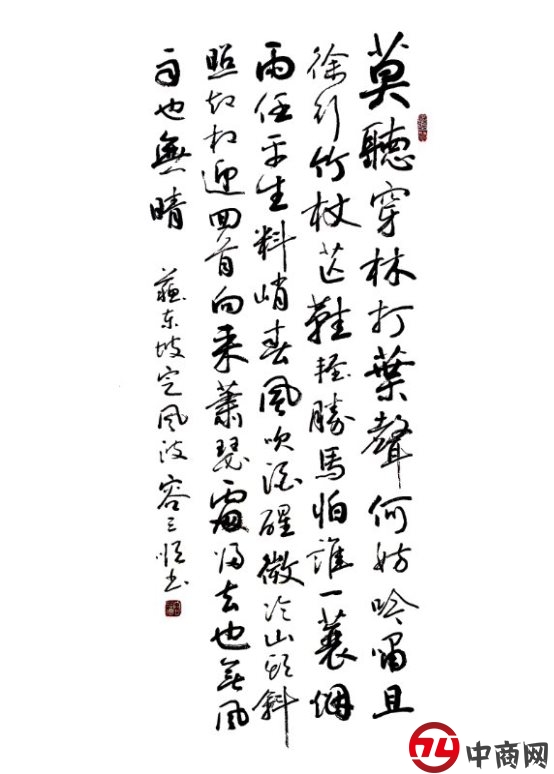 莫聽穿林打葉聲何妨吟嘯且
徐行竹杖芒鞋輕勝馬怕誰一蓑烟
雨任平生料峭春風吹酒醒微冷山頭斜
照却相迎回首向来蕭瑟處歸去也無風
雨也無晴 蘇东坡定風波
中商网